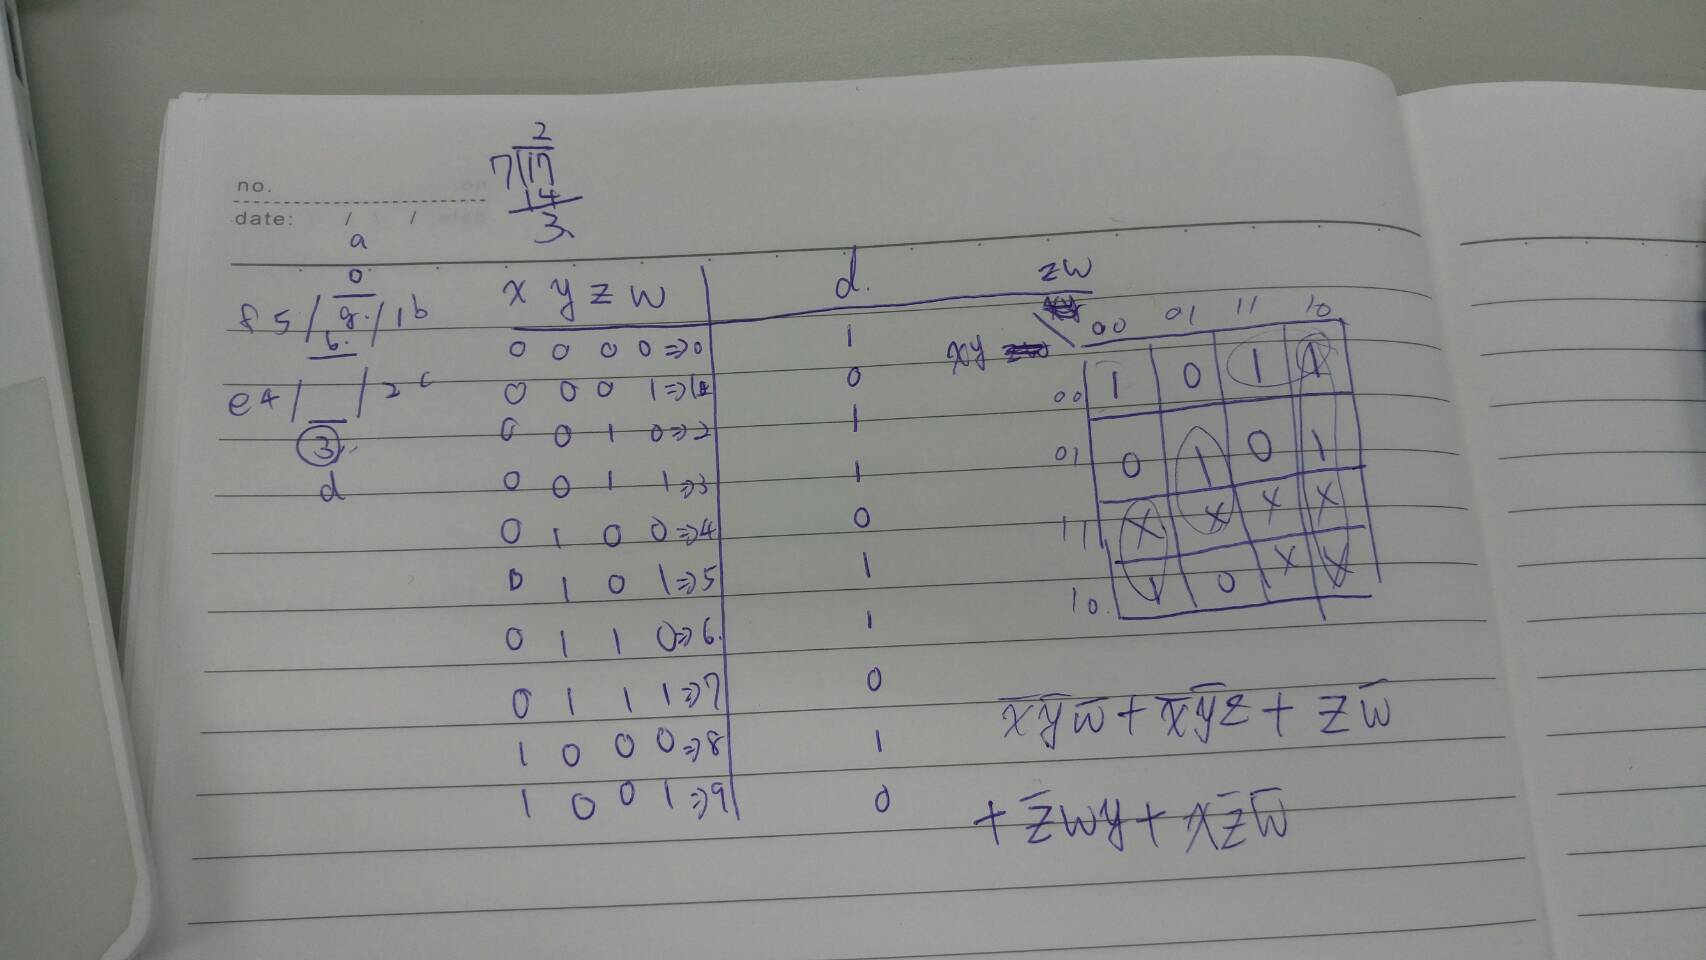 2
7)17
14
3
no.
date: / /
a
0
f 5 / g. / 1 b
6.
e 4 / / 2 c
3
d
x y z w d.
0 0 0 0 ⇒ 0 1
0 0 0 1 ⇒ 0
0 0 1 0 ⇒ 2 1
0 0 1 1 ⇒ 3 1
0 1 0 0 ⇒ 4 0
0 1 0 1 ⇒ 5 1
0 1 1 0 ⇒ 6. 1
0 1 1 1 ⇒ 7 0
1 0 0 0 ⇒ 8 1
1 0 0 1 ⇒ 9 0
zw
xy 00 01 11 10
00 1 0 1 1
01 0 1 0 1
11 X X X X
10. 1 0 X X
x̅y̅w̅ + x̅y̅z + zw̅
+ z̅wy + xz̅w̅